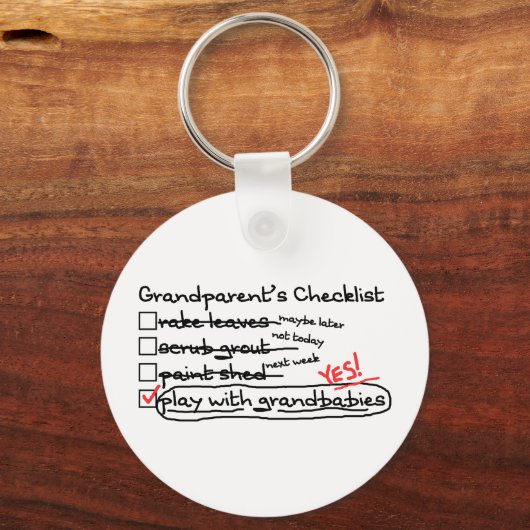 Grandparent's Checklist
rake leaves maybe later
scrub grout not today
paint shed next week
YES!
play with grandbabies